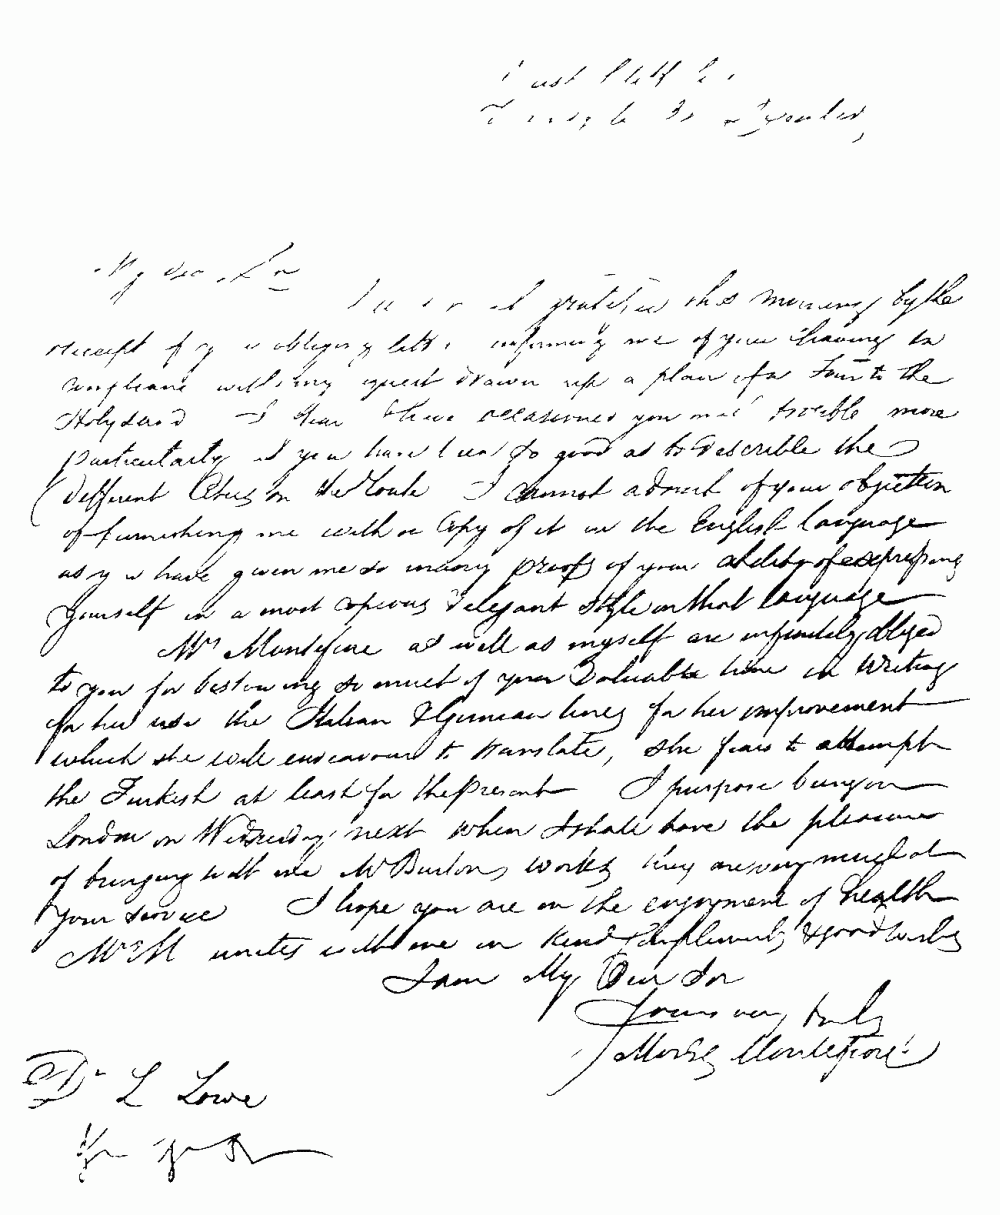 My dear Sir
gratified this morning by the
receipt of your obliging letter informing me of your having in
compliance with my request drawn up a plan of a Tour to the
Holyland I fear I have occasioned you much trouble more
particularly as you have been so good as to describe the
different Cities on the Route I cannot admit of your objection
of furnishing me with a Copy of it in the English language
as you have given me so many proofs of your ability of expressing
yourself in a most copious & elegant style in that language
Mrs Montefiore as well as myself are infinitely obliged
to you for bestowing so much of your valuable time in writing
for her use the Italian & German lines for her improvement
which she will endeavour to translate, she fears to attempt
the Turkish at least for the Present I purpose being in
London on Wednesday next when I shall have the pleasure
of bringing with me Mr Burtons works they are very much at
your service I hope you are in the enjoyment of health
Mrs M unites with me in kind Compliments & good wishes
I am My Dear Sir
Yours very truly
Moses Montefiore
Dr L Lowe